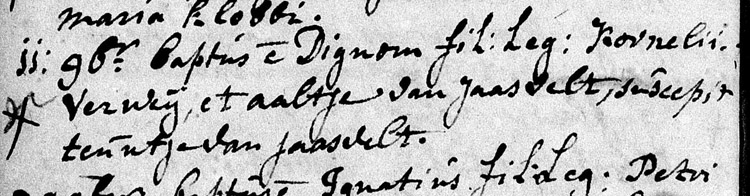 maria Klobbi.
11: 9br baptus e Dignom fil: Leg: Kornelii.
Verweÿ, et aaltje van jaasvelt, suscepit
teuntje van jaasvelt.
baptus e Ignatius fil: Leg: Petri